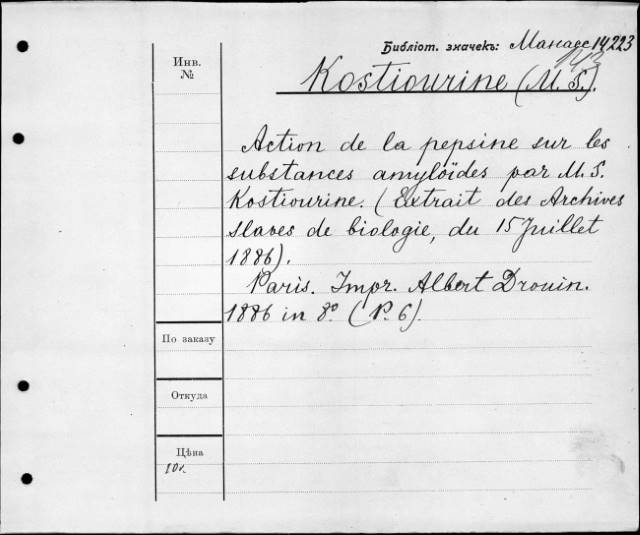 Библіот. значекъ: Манасе 14223
143
Инв.
№
Kostiourine (M. S.).
Action de la pepsine sur les
substances amyloïdes par M. S.
Kostiourine. (Extrait des Archives
slaves de biologie, du 15 Juillet
1886).
Paris. Impr. Albert Drouin.
1886 in 8° (P. 6).
По заказу
Откуда
Цѣна